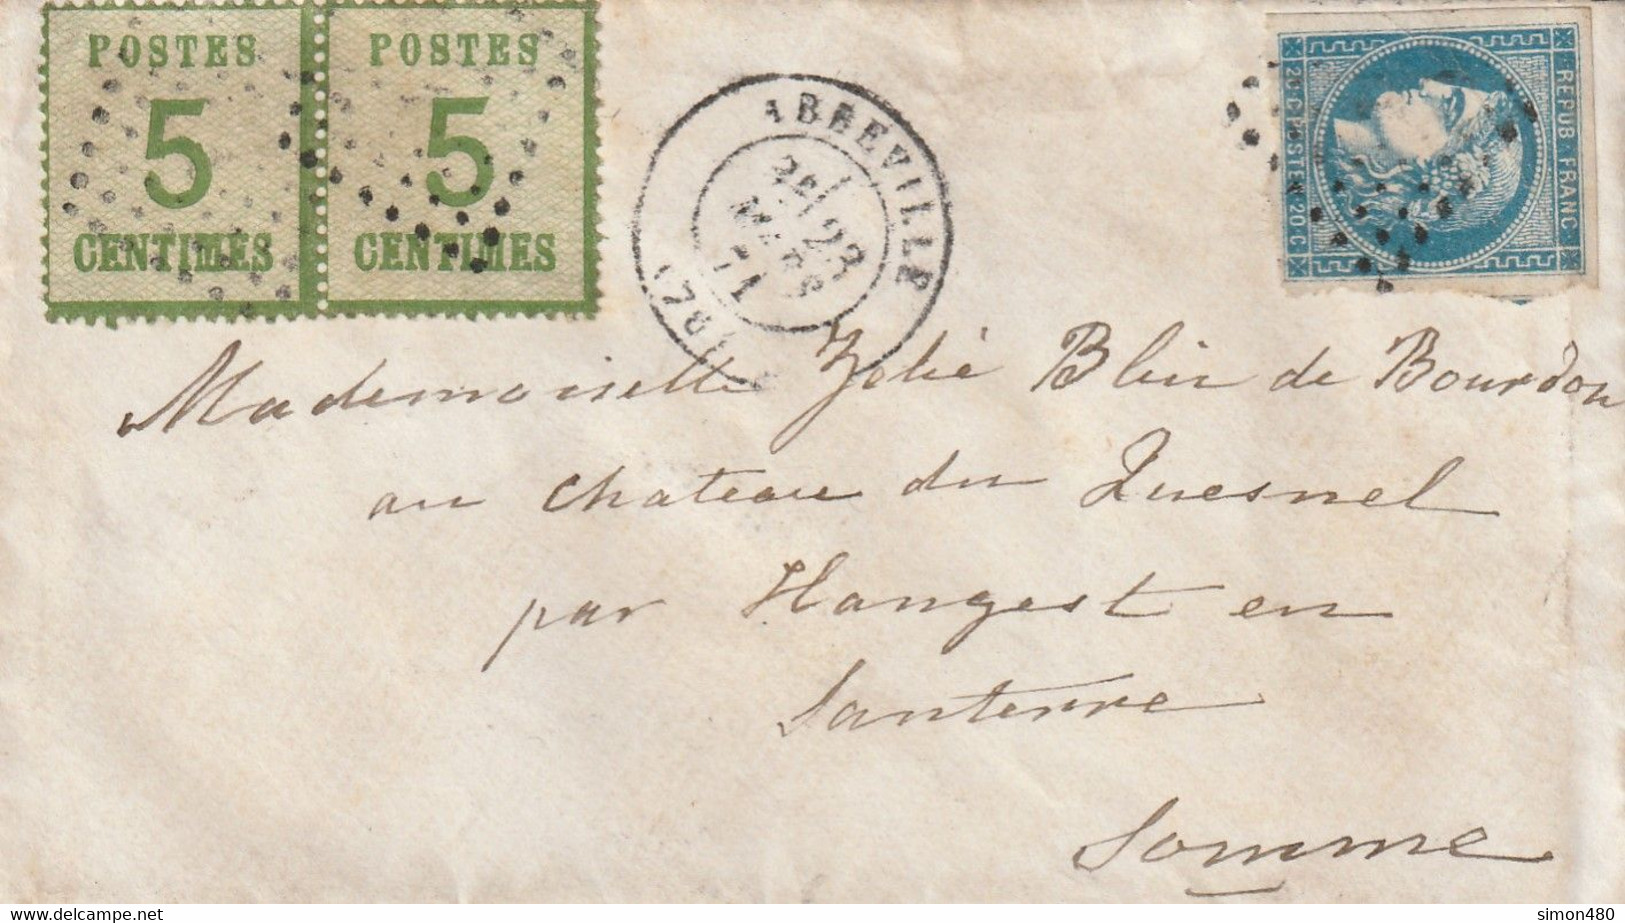 POSTES
5
CENTIMES
POSTES
5
CENTIMES
ABBEVILLE
2E/ 23
MARS
71
REPUB. FRANC.
20 C. POSTES. 20 C.
Mademoiselle Zélie Blin de Bourdon
au chateau du Quesnel
par Hangest en
Santerre
Somme
www.delcampe.net
simon480